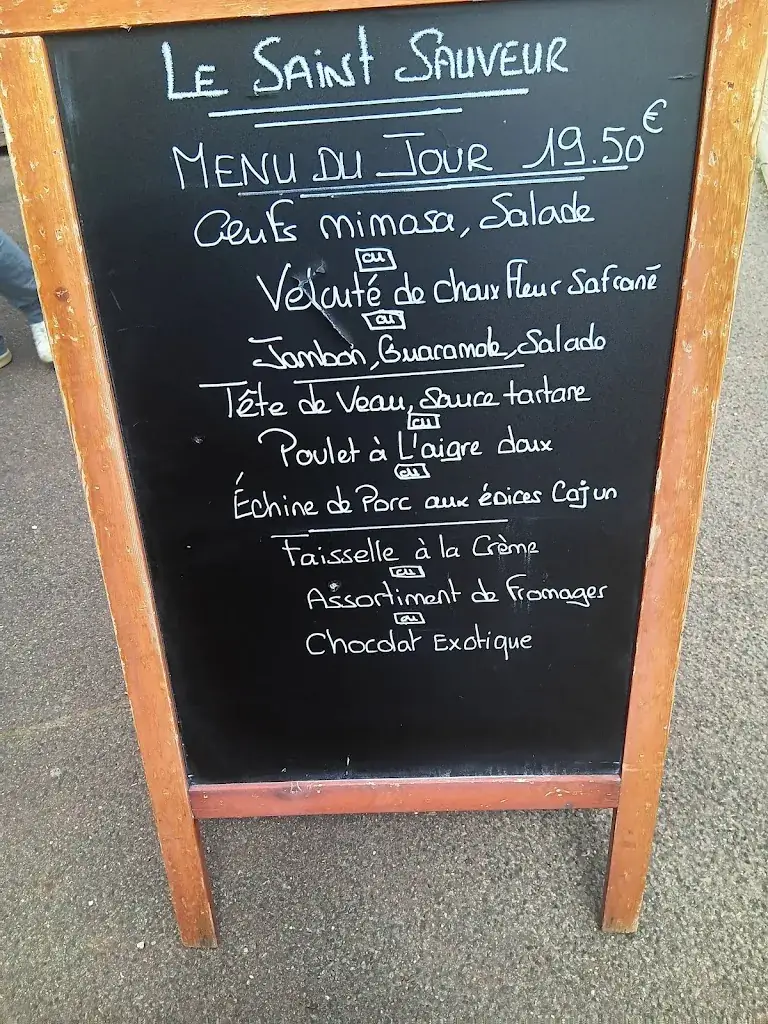 LE SAINT SAUVEUR
MENU DU JOUR 19.50€
Oeufs mimosa, Salade
ou
Velouté de chou Fleur Safrané
ou
Jambon, Guacamole, Salade
Tête de Veau, Sauce tartare
ou
Poulet à L'aigre doux
ou
Échine de Porc aux épices Cajun
Faisselle à la Crème
ou
Assortiment de Fromages
ou
Chocolat Exotique